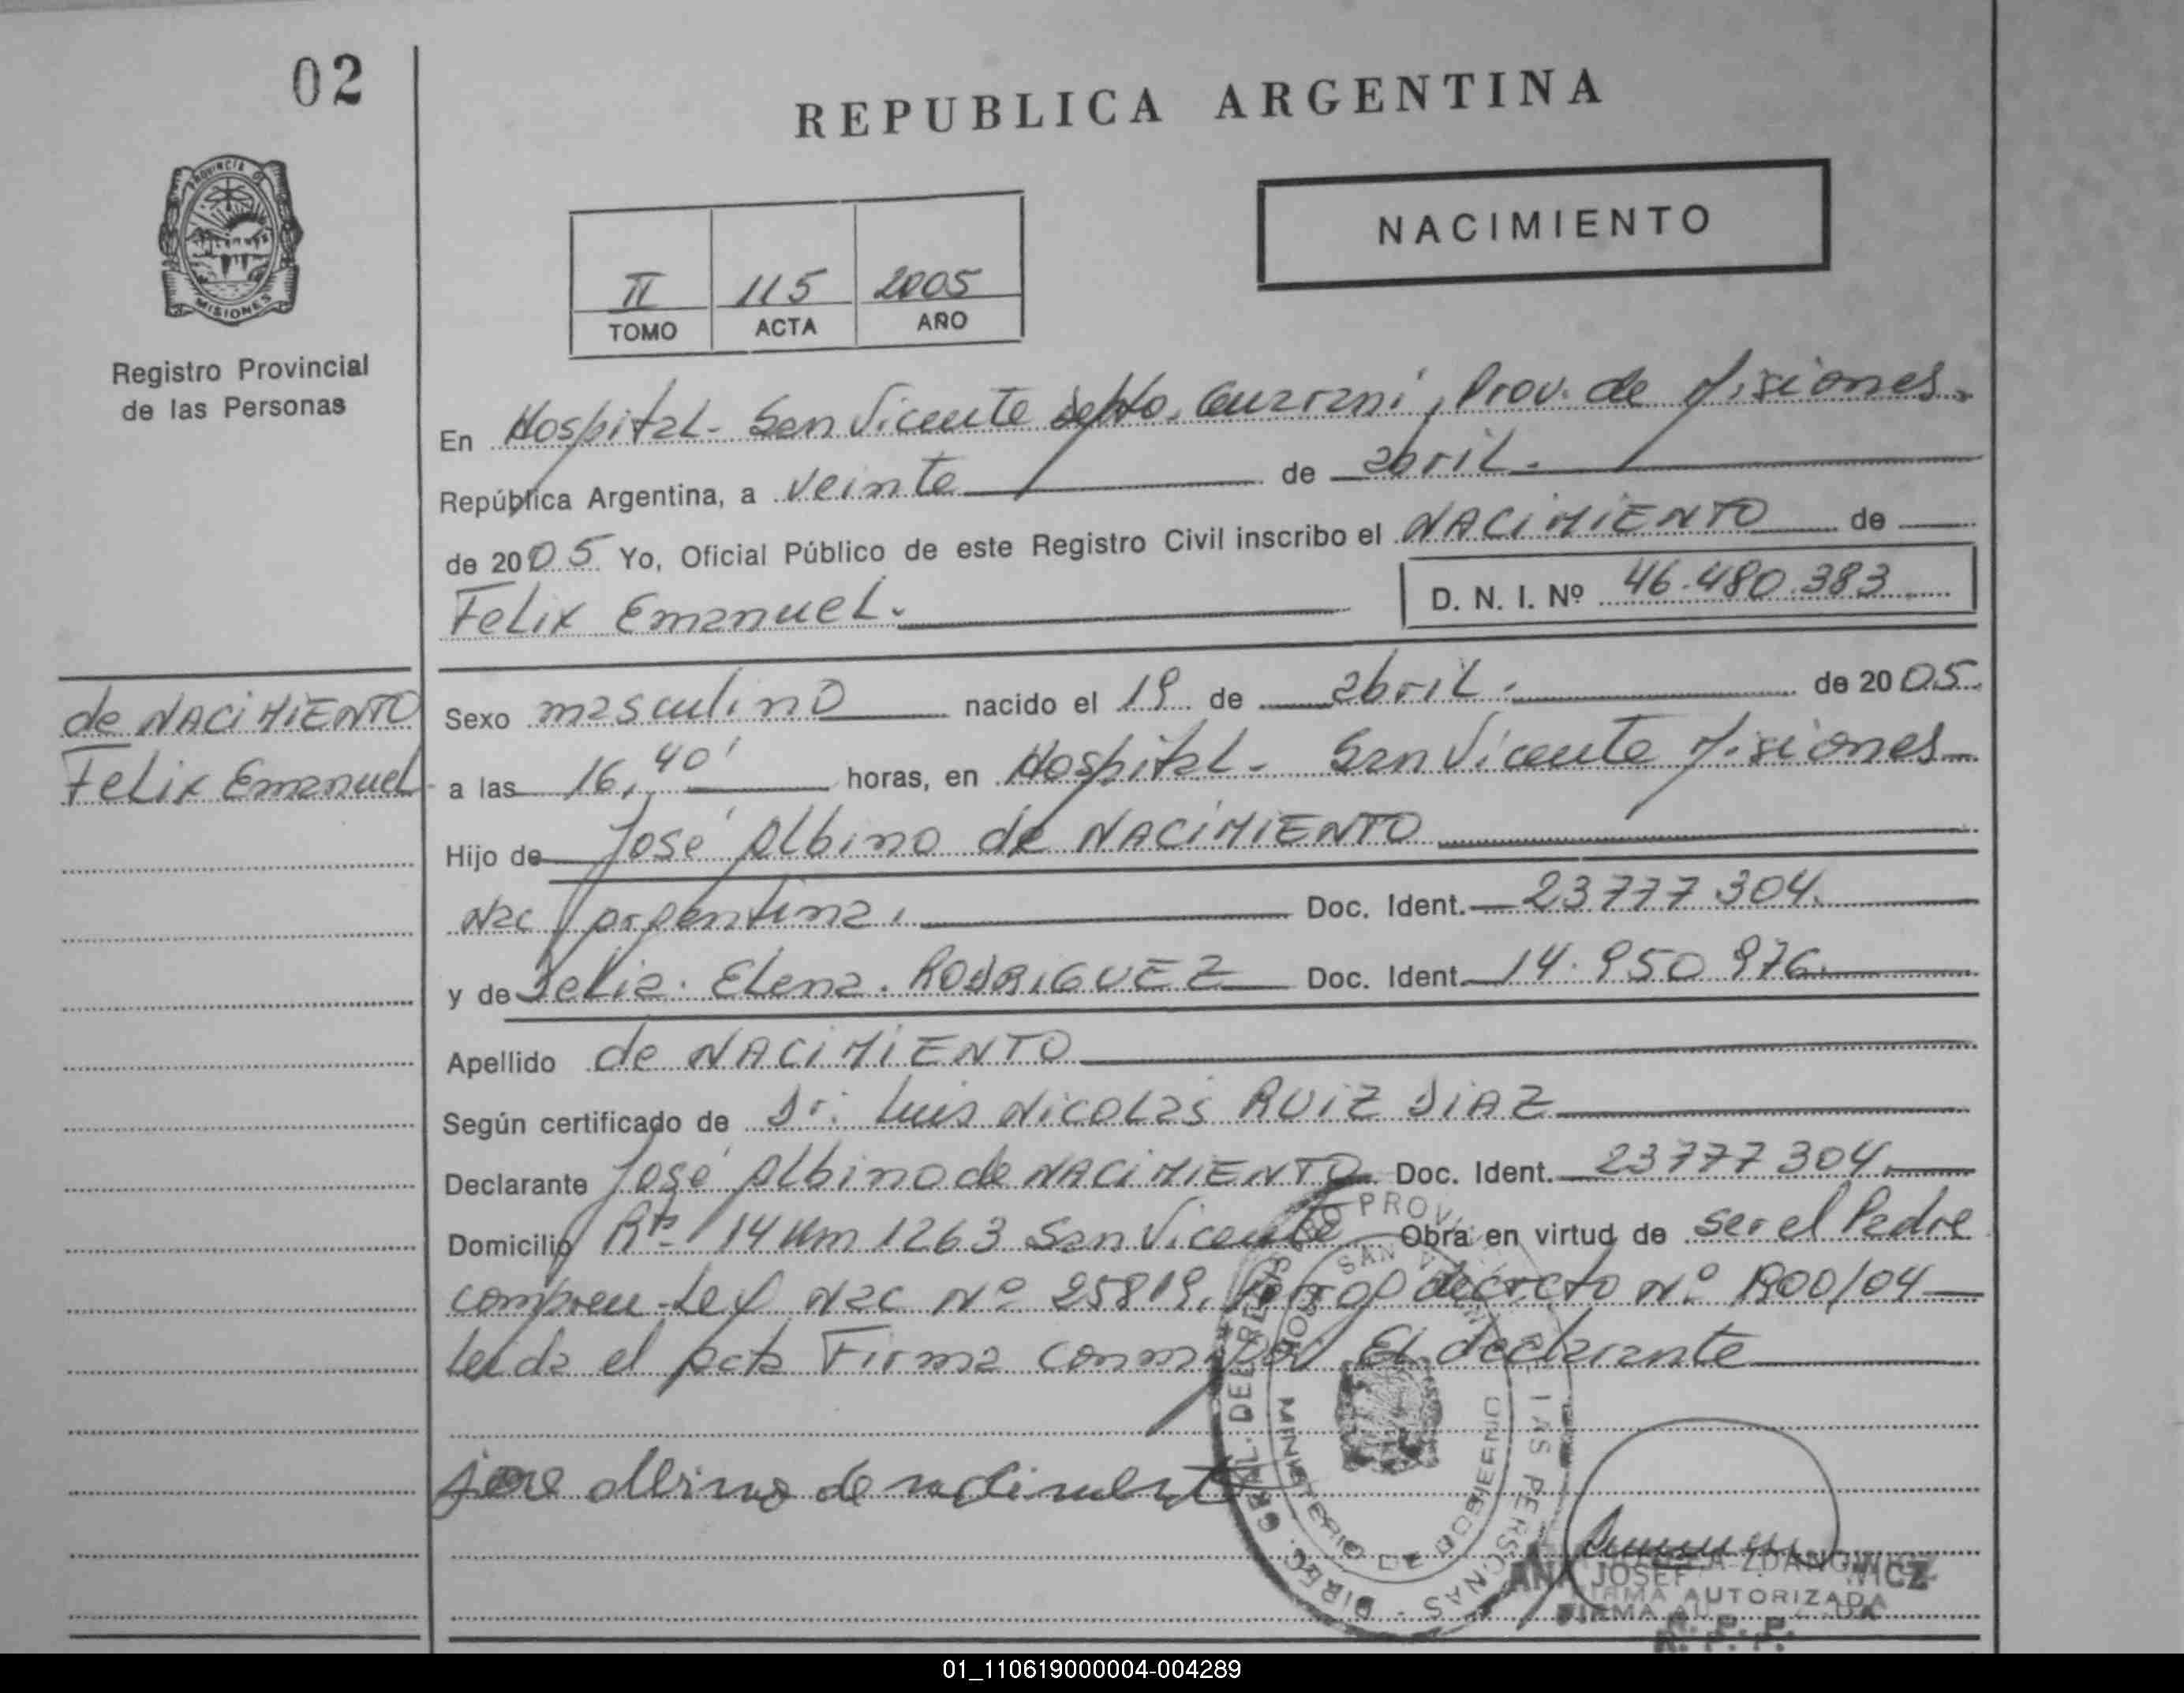 02
REPUBLICA ARGENTINA
PROVINCIA DE
MISIONES
Registro Provincial
de las Personas
NACIMIENTO
II 115 2005
TOMO ACTA AÑO
En Hospital - San Vicente depto. Guarani, Prov. de Misiones.
República Argentina, a veinte de abril.
de 2005 Yo, Oficial Público de este Registro Civil inscribo el NACIMIENTO de
Felix Emanuel.
D. N. I. Nº 46.480.383
de NACIMIENTO
Felix Emanuel
Sexo masculino nacido el 19 de abril. de 2005
a las 16,40' horas, en Hospital - San Vicente Misiones
Hijo de José Albino de NACIMIENTO
Nac argentina, Doc. Ident. 23777 304.
y de Elena. RODRIGUEZ Doc. Ident. 14.950 976
Apellido de NACIMIENTO
Según certificado de Dr. Luis Nicolas RUIZ DIAZ
Declarante José Albino de NACIMIENTO Doc. Ident. 23777 304
Domicilio Rta 14 Km 1263 San Vicente Obra en virtud de ser el Padre
Ley Nac Nº 25819, decreto Nº 1900/04
el acta Firma El declarante
jose albino de
DIREC. GRAL. DEL REGISTRO PROV. DE LAS PERSONAS
HOSP. SAN VICENTE
MINISTERIO DE GOBIERNO
ANA JOSEFA ZDANOWICZ
FIRMA AUTORIZADA
R. P. P.
01_110619000004-004289